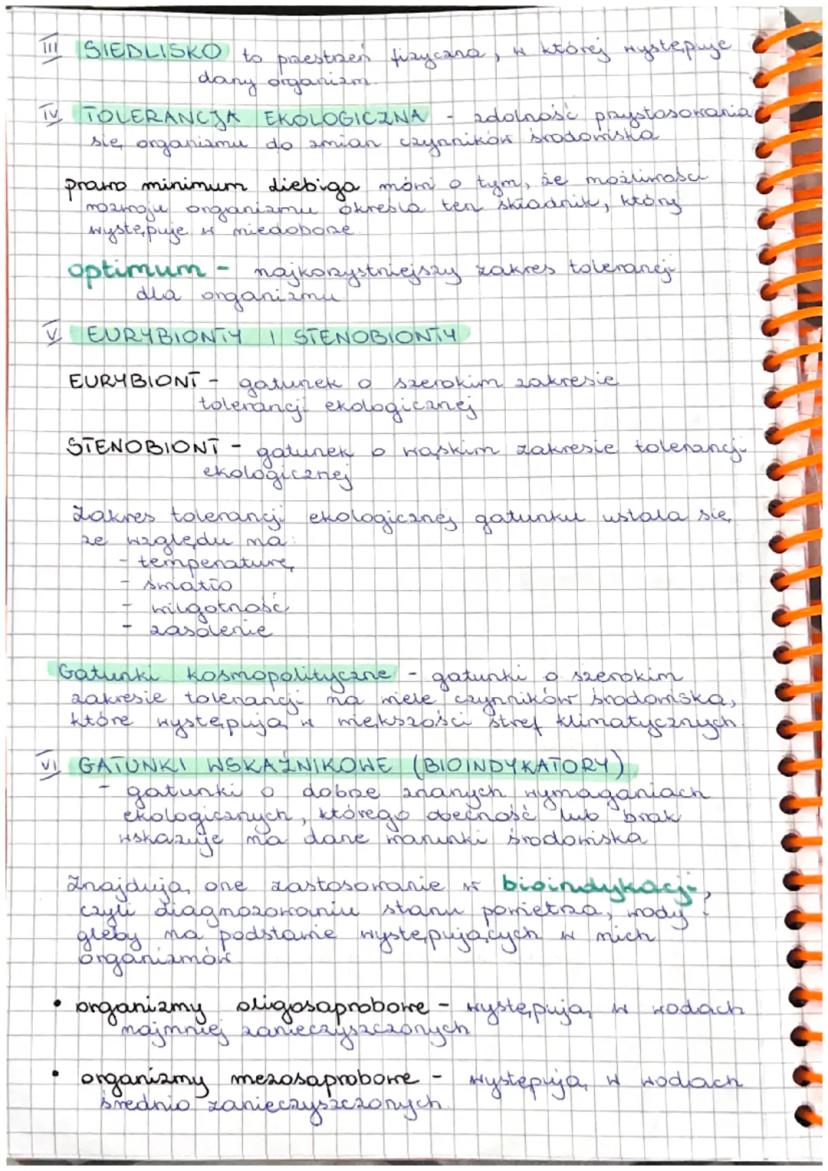 III SIEDLISKO to przestrzeń fizyczna, w której występuje
dany organizm.
IV TOLERANCJA EKOLOGICZNA - zdolność przystosowania
się organizmu do zmian czynników środowiska
prawo minimum Liebiga mówi o tym, że możliwości
rozwoju organizmu określa ten składnik, który
występuje w niedoborze
optimum - najkorzystniejszy zakres tolerancji
dla organizmu
V EURYBIONTY I STENOBIONTY
EURYBIONT - gatunek o szerokim zakresie
tolerancji ekologicznej
STENOBIONT - gatunek o wąskim zakresie tolerancji
ekologicznej
Zakres tolerancji ekologicznej gatunku ustala się
ze względu na:
- temperaturę
- światło
- wilgotność
- zasolenie
Gatunki kosmopolityczne - gatunki o szerokim
zakresie tolerancji na wiele czynników środowiska,
które występują w większości stref klimatycznych.
VI GATUNKI WSKAŹNIKOWE (BIOINDYKATORY)
- gatunki o dobrze znanych wymaganiach
ekologicznych, którego obecność lub brak
wskazuje na dane warunki środowiska
Znajdują one zastosowanie w bioindykacji,
czyli diagnozowaniu stanu powietrza, wody i
gleby na podstawie występujących w nich
organizmów
• organizmy oligosaprobowe - występują w wodach
najmniej zanieczyszczonych
• organizmy mezosaprobowe - występują w wodach
średnio zanieczyszczonych.